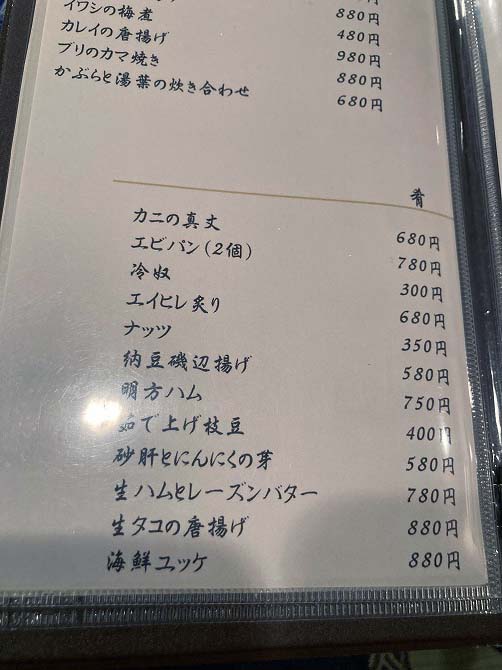 880円
イワシの梅煮 480円
カレイの唐揚げ 980円
ブリのカマ焼き 880円
かぶらと湯葉の炊き合わせ 680円
肴
カニの真丈 680円
エビパン(2個) 780円
冷奴 300円
エイヒレ炙り 680円
ナッツ 350円
納豆磯辺揚げ 580円
明方ハム 750円
茹で上げ枝豆 400円
砂肝とにんにくの芽 580円
生ハムとレーズンバター 780円
生タコの唐揚げ 880円
海鮮ユッケ 880円